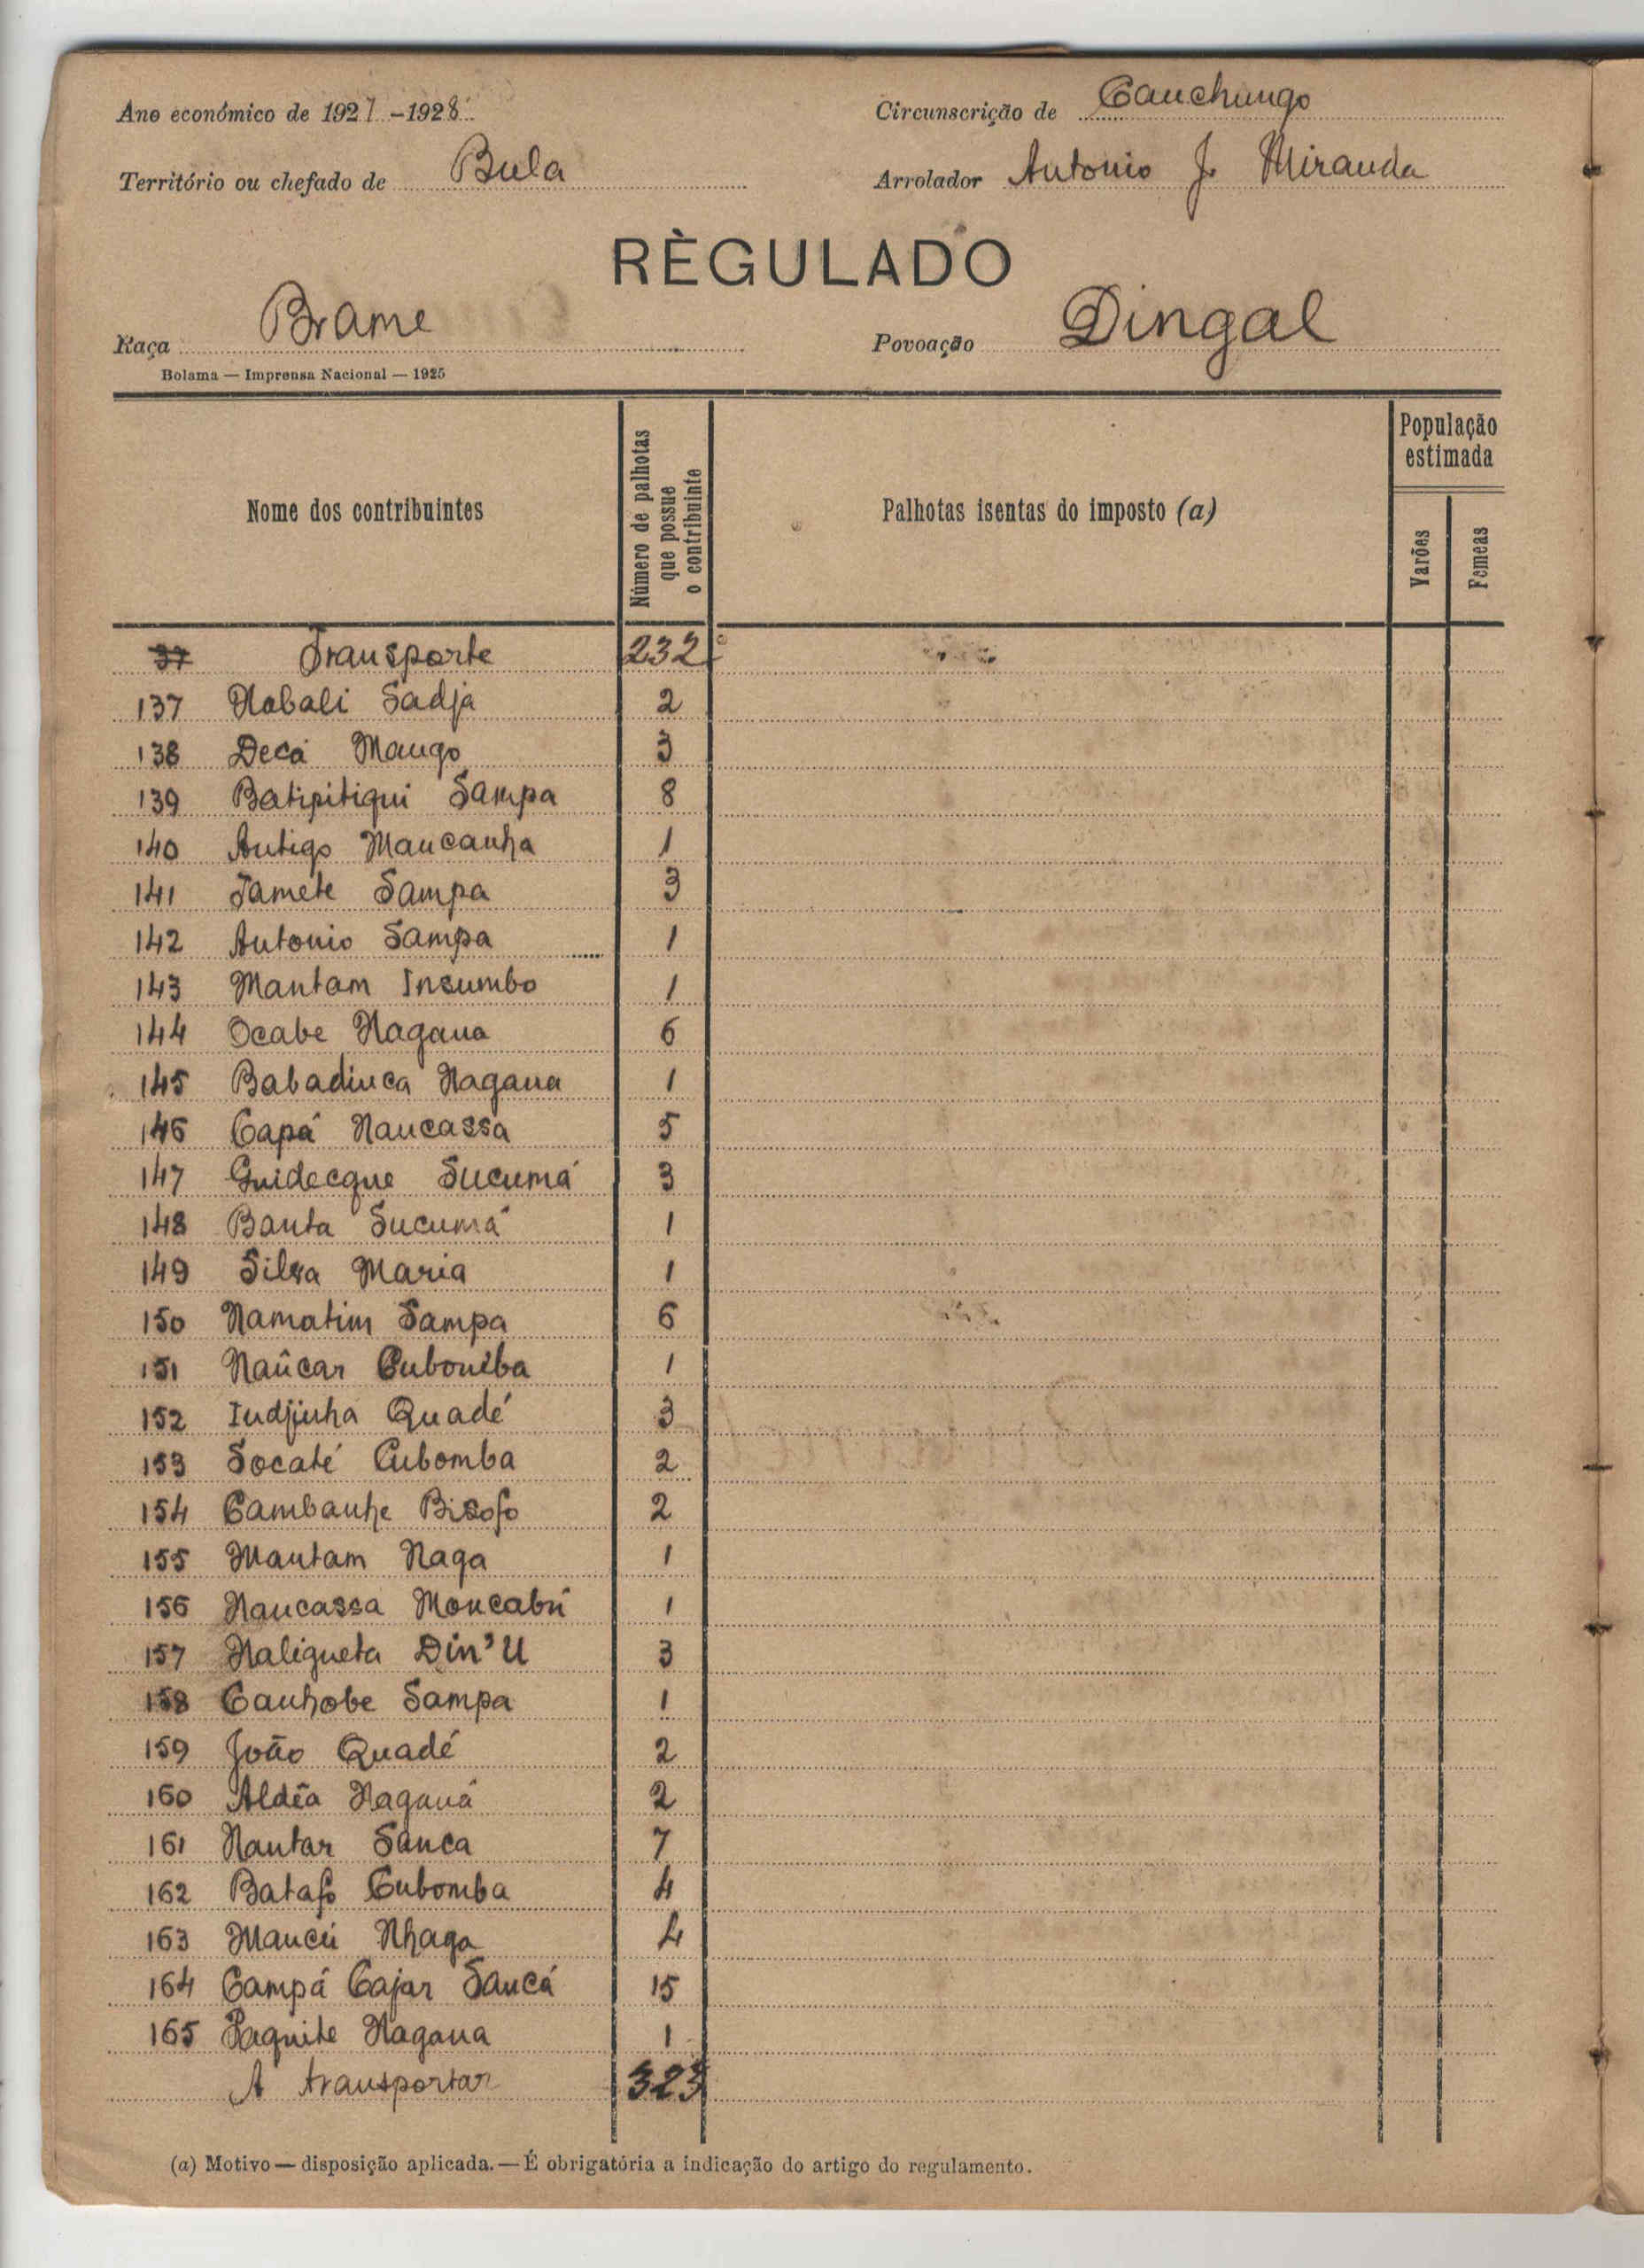 Ano económico de 1927-1928 Circunscrição de Canchungo
Território ou chefado de Bula Arrolador Antonio J. Miranda
RÈGULADO
Raça Brame Povoação Dingal
Bolama — Imprensa Nacional — 1925
Nome dos contribuintes Número de palhotas que possue o contribuinte Palhotas isentas do imposto (a) População estimada Varões Femeas
37 Transporte 232
137 Nabali Sadja 2
138 Decá Mango 3
139 Batipitiqui Sampa 8
140 Antigo Mancanha 1
141 Jamete Sampa 3
142 Antonio Sampa 1
143 Mantam Insumbo 1
144 Ocabe Nagana 6
145 Babadinca Nagana 1
146 Capá Naucassa 5
147 Guidecque Sucumá 3
148 Banta Sucumá 1
149 Silva Maria 1
150 Namatim Sampa 6
151 Naûcar Cuboniba 1
152 Indjinha Quadé 3
153 Socaté Cubomba 2
154 Cambanhe Bisofo 2
155 Mantam Naga 1
156 Naucassa Moncabú 1
157 Naligueta Din'U 3
158 Canhobe Sampa 1
159 João Quadé 2
160 Aldêa Naganá 2
161 Nantar Sanca 7
162 Batafo Cubomba 4
163 Mancú Nhaga 4
164 Campá Cajar Sancá 15
165 Paquite Nagana 1
A transportar 323
(a) Motivo — disposição aplicada. — É obrigatória a indicação do artigo do regulamento.